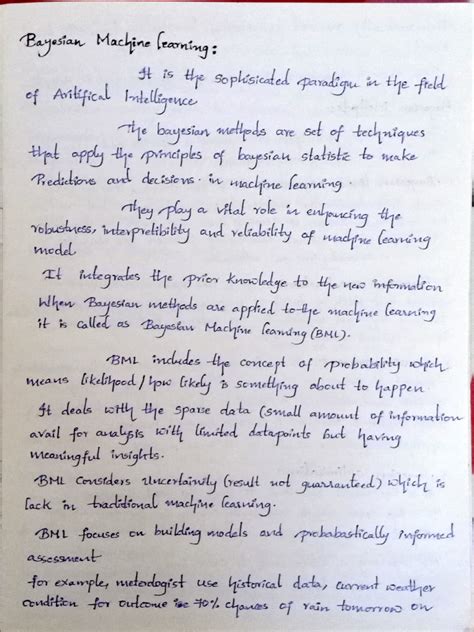 Bayesian Machine Learning:
It is the sophisicated paradigm in the field
of Aritifical Intelligence
The bayesian methods are set of techniques
that apply the principles of bayesian statistic to make
Predictions and decisions. in machine learning.
They play a vital role in enhancing the
robustness, interpretibility and reliability of machine learning
model
It integrates the prior knowledge to the new information
When Bayesian methods are applied to the machine learning
it is called as Bayesian Machine learning (BML).
BML includes the concept of probability which
means likelihood / how likely is something about to happen
It deals with the sparse data (small amount of information
avail for analysis with limited datapoints but having
meaningful insights.
BML Considers Uncertainity (result not guarranteed) which is
lack in traditional machine learning.
BML focuses on building models and probabastically informed
assessment
for example, meterologist use historical data, current weather
condition for outcome ie 70% chances of rain tomorrow on